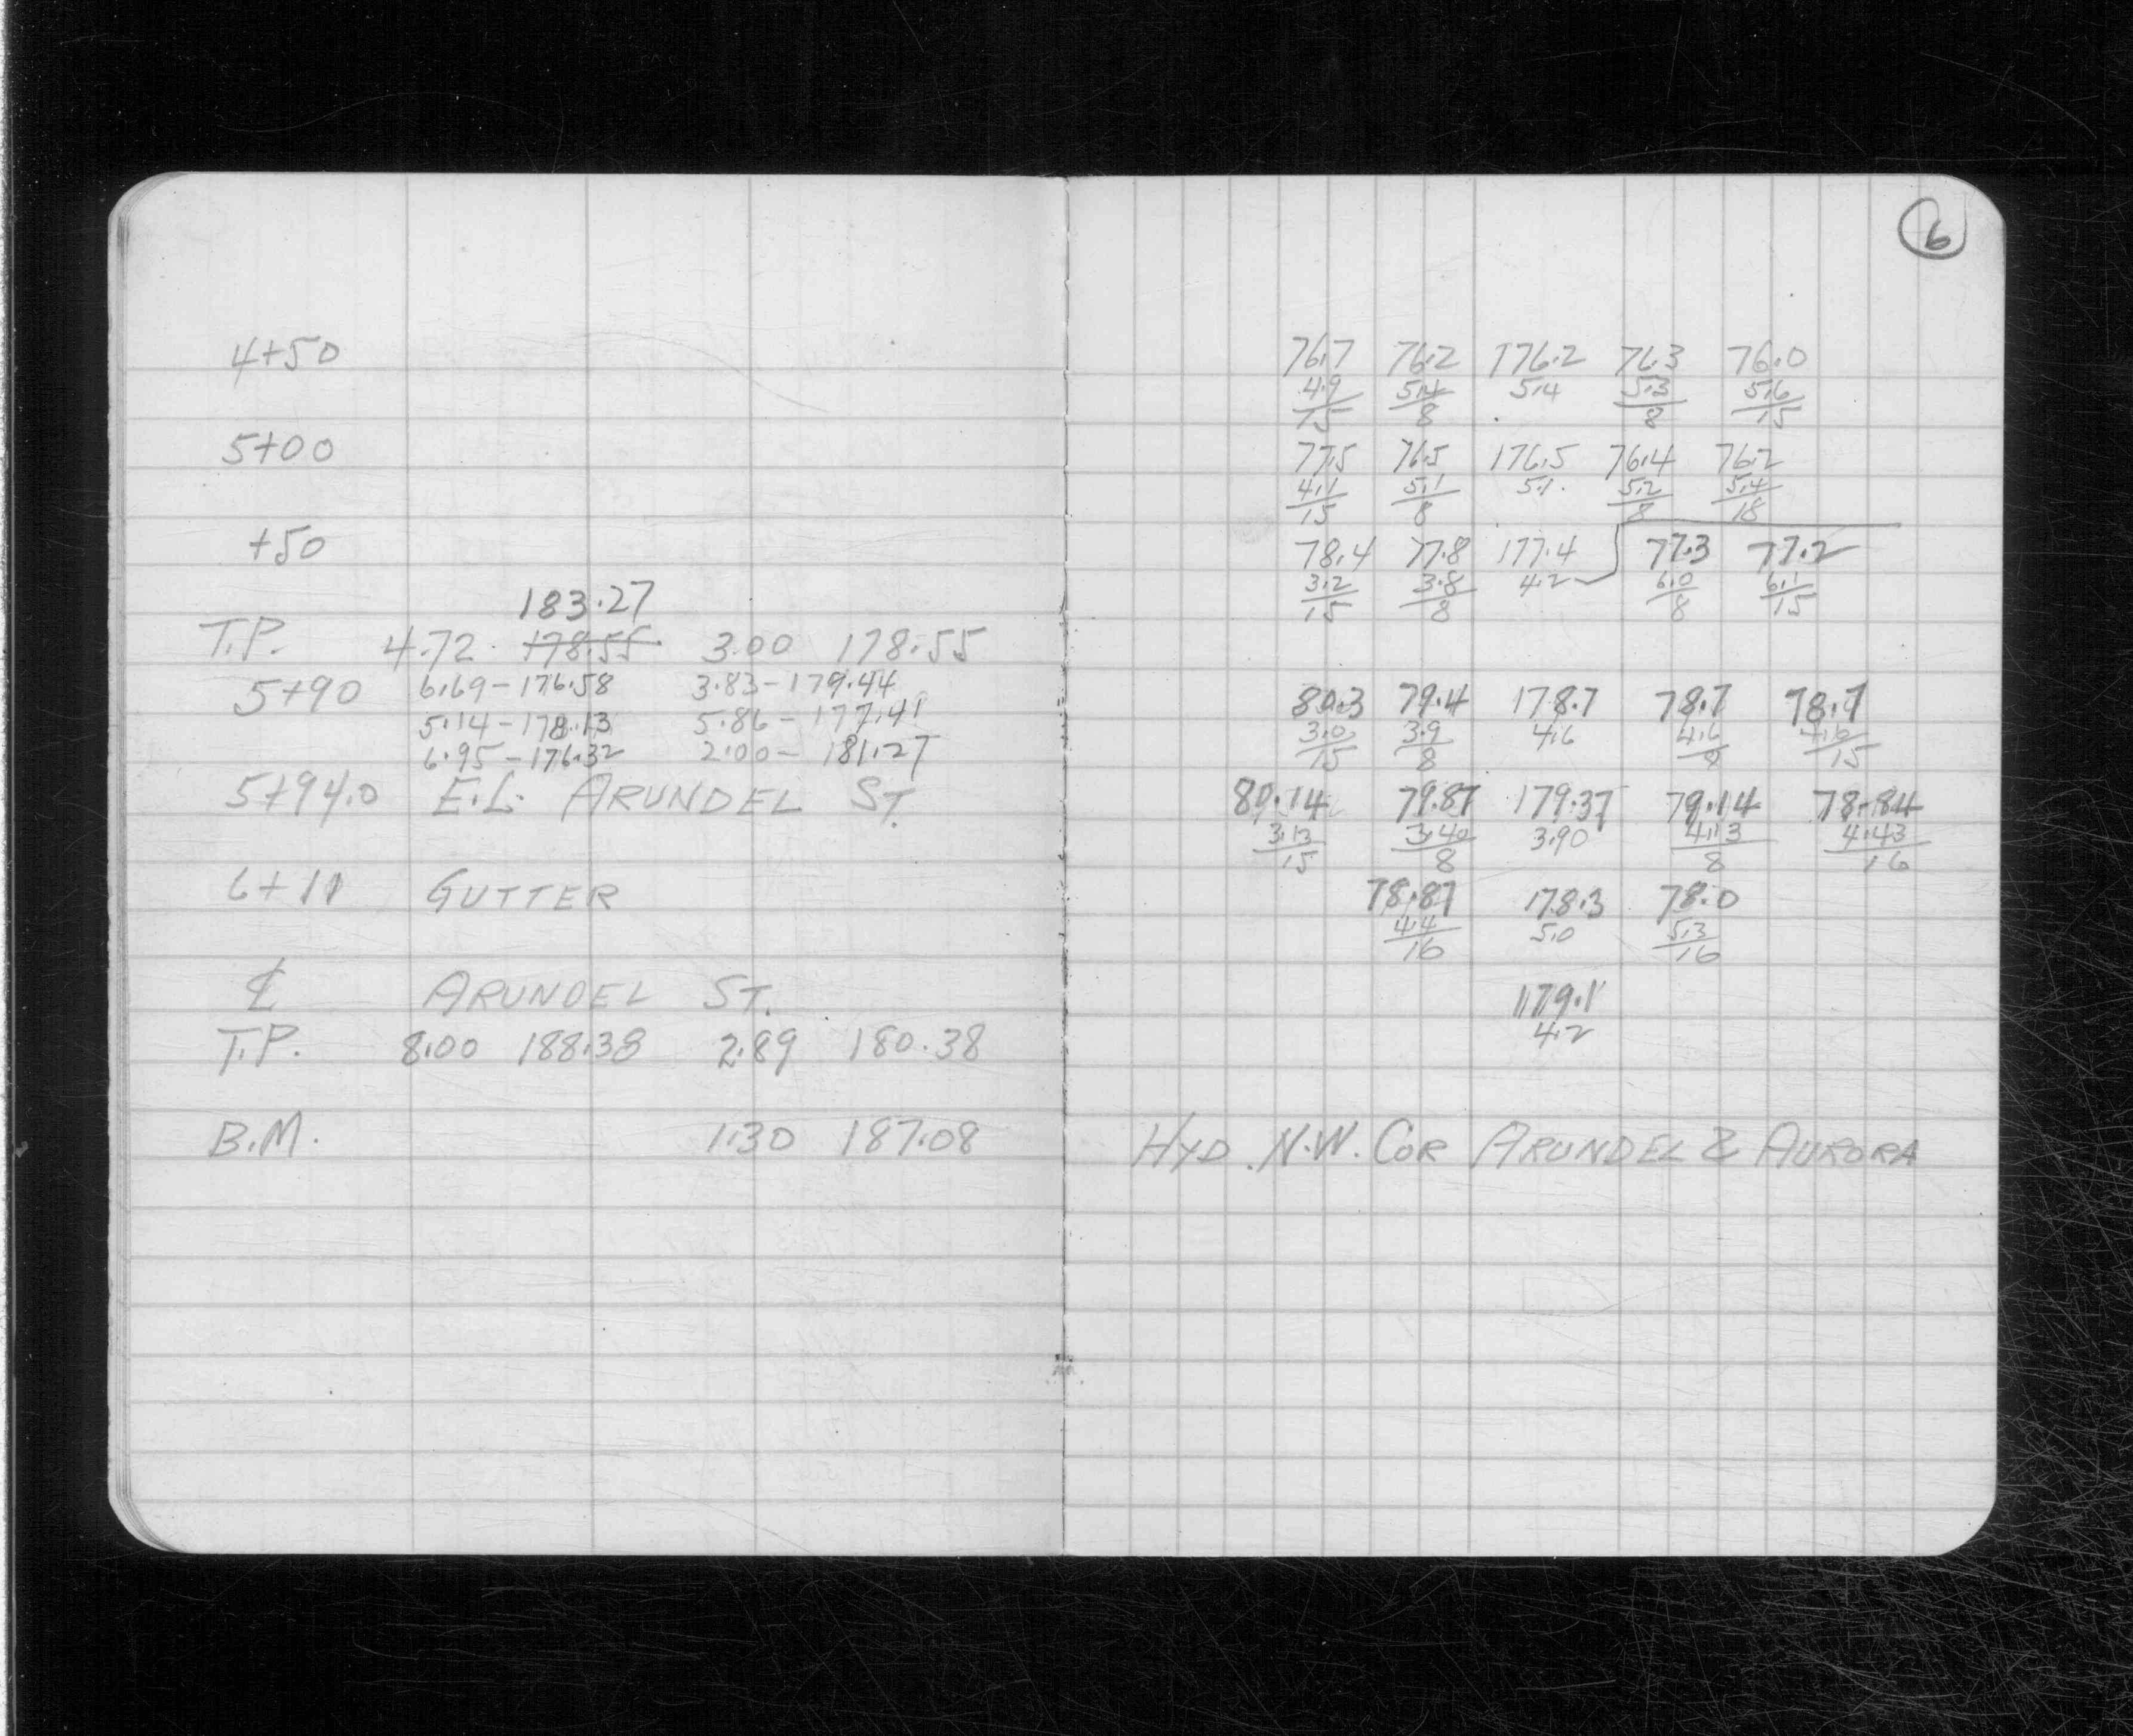 6
4+50 76.7 76.2 176.2 76.3 76.0
4.9 5.4 5.4 5.3 5.6
15 8 8 15
5+00 77.5 76.5 176.5 76.4 76.2
4.1 5.1 5.1 5.2 5.4
15 8 8 18
+50 78.4 77.8 177.4 77.3 77.2
3.2 3.8 4.2 6.0 6.1
15 8 8 15
183.27
T.P. 4.72 178.55 3.00 178.55
5+90 6.69-176.58 3.83-179.44 80.3 79.4 178.7 78.7 78.7
5.14-178.13 5.86-177.41 3.0 3.9 4.6 4.6 4.6
6.95-176.32 2.00-181.27 15 8 8 15
5+94.0 E.L. ARUNDEL ST. 80.14 79.87 179.37 79.14 78.84
3.13 3.40 3.90 4.13 4.43
15 8 8 16
6+11 GUTTER 78.87 178.3 78.0
4.4 5.0 5.3
16 16
℄ ARUNDEL ST. 179.1
4.2
T.P. 8.00 188.38 2.89 180.38
B.M. 1.30 187.08 HYD. N.W. COR ARUNDEL & AURORA